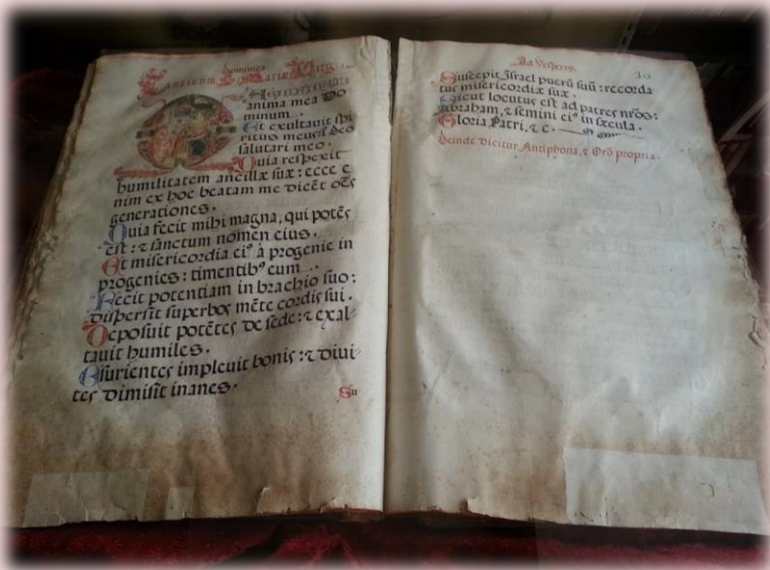 Canticum Beatæ Mariæ Virg.
anima mea Do
minum.
Et exultavit spi
ritus meus in deo
salutari meo.
Quia respexit
humilitatem ancillæ suæ: ecce e
nim ex hoc beatam me dicēt oēs
generationes.
Quia fecit mihi magna, qui potēs
est: ⁊ sanctum nomen eius.
Et misericordia eiꝰ à progenie in
progenies: timentibꝰ eum.
Fecit potentiam in brachio suo:
dispersit superbos mēte cordis sui.
Deposuit potētes de sede: ⁊ exal-
tavit humiles.
Esurientes implevit bonis: ⁊ divi-
tes dimisit inanes.
Su
Ad Vesperas.
30
Suscepit Israel puerū suū: recorda
tus misericordiæ suæ.
Sicut locutus est ad patres nr̄os:
Abraham, ⁊ semini eiꝰ in sæcula.
Gloria Patri, ⁊ c.
Deinde dicitur Antiphona, ⁊ Orō propria.